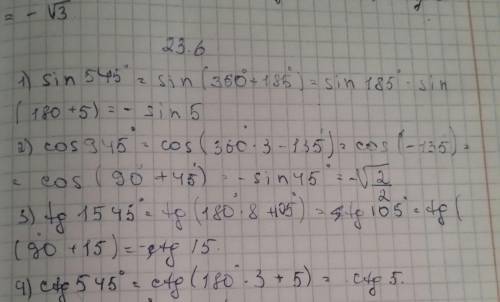 = - √3
23.6
1) sin 545° = sin (360° + 185°) = sin 185° = sin
(180 + 5) = - sin 5
2) cos 945° = cos (360° · 3 - 135°) = cos (-135) =
= cos (90° + 45°) = - sin 45° = -√2/2
3) tg 1545° = tg (180° · 8 + 105°) = tg 105° = tg (
(90° + 15) = -ctg 15.
4) ctg 545° = ctg (180° · 3 + 5) = ctg 5.